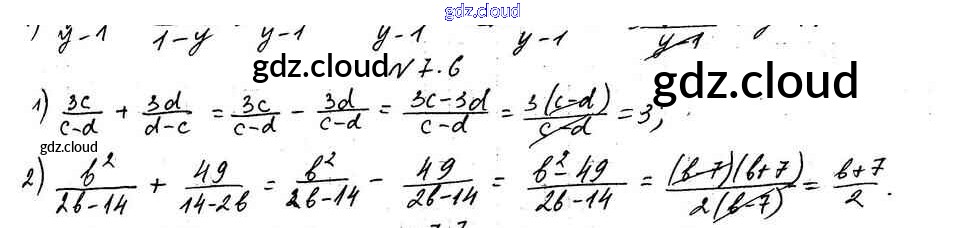 gdz.cloud
y-1 1-y y-1 y-1 y-1 y-1
gdz.cloud № 7.6 gdz.cloud
1) 3c/(c-d) + 3d/(d-c) = 3c/(c-d) - 3d/(c-d) = (3c-3d)/(c-d) = 3(c-d)/(c-d) = 3;
gdz.cloud
2) b²/(2b-14) + 49/(14-2b) = b²/(2b-14) - 49/(2b-14) = (b²-49)/(2b-14) = (b-7)(b+7)/2(b-7) = (b+7)/2.